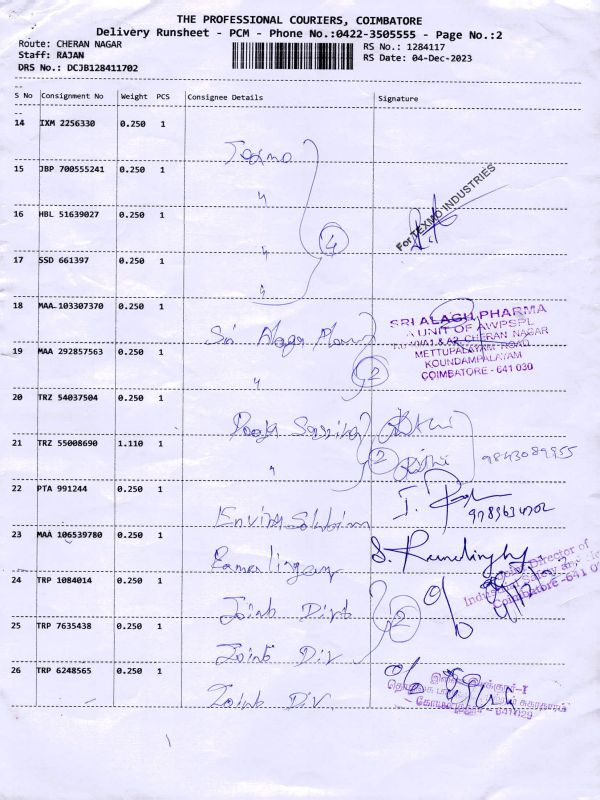 THE PROFESSIONAL COURIERS, COIMBATORE
Delivery Runsheet - PCM - Phone No.:0422-3505555 - Page No.:2
Route: CHERAN NAGAR
RS No.: 1284117
Staff: RAJAN
RS Date: 04-Dec-2023
DRS No.: DCJB128411702
S No Consignment No Weight PCS Consignee Details Signature
14 IXM 2256330 0.250 1
Texmo
15 JBP 700555241 0.250 1
"
For TEXMO INDUSTRIES
16 HBL 51639027 0.250 1
"
4
17 SSD 661397 0.250 1
"
18 MAA 103307370 0.250 1
Sri Alaga
SRI ALAGH PHARMA
A UNIT OF AWPSPL
A1 & A2, CHERAN NAGAR
METTUPALAYAM ROAD
KOUNDAMPALAYAM
COIMBATORE - 641 030
19 MAA 292857563 0.250 1
"
2
20 TRZ 54037504 0.250 1
Pooja
21 TRZ 55008690 1.110 1
"
2
9843089955
22 PTA 991244 0.250 1
9789634702
23 MAA 106539780 0.250 1
Ramalingam
Director of
Industrial Safety and
Coimbatore -641 0
24 TRP 1084014 0.250 1
Joint Dir
2
25 TRP 7635438 0.250 1
Joint Dir
26 TRP 6248565 0.250 1
Joint Dir
641 029